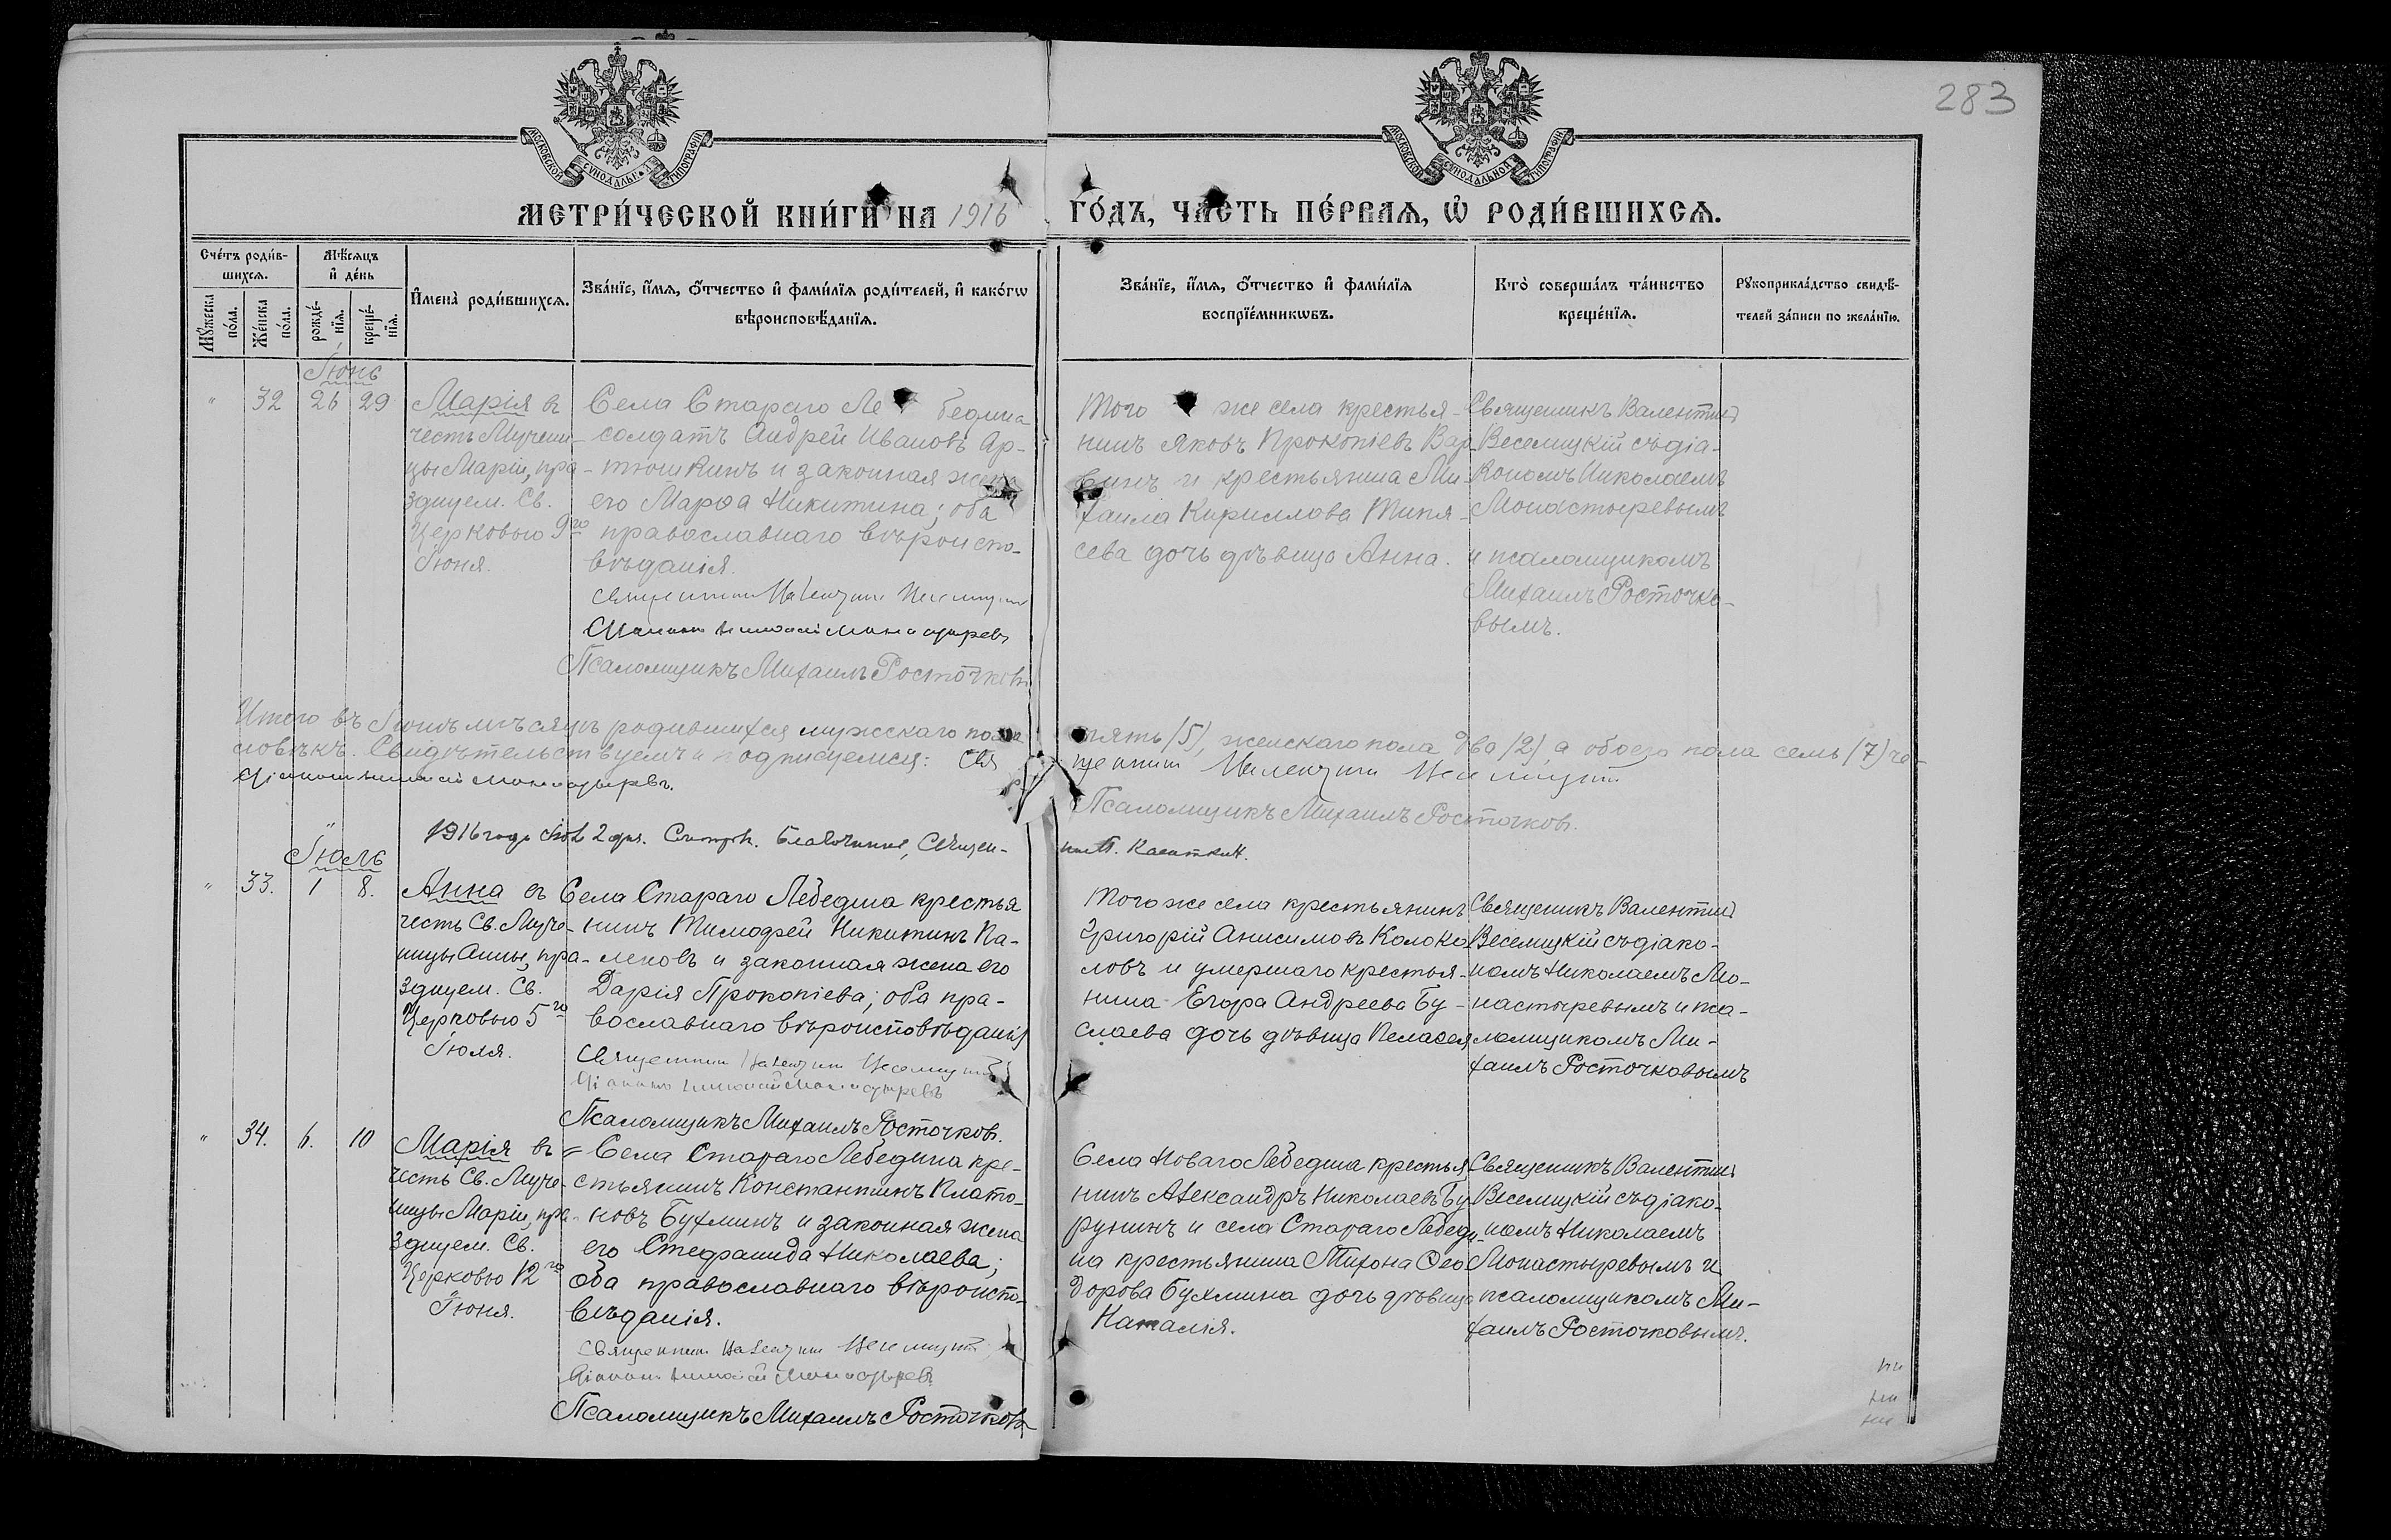 283
МОСКОВСКОЙ СѴНОДАЛЬНОЙ ТИПОГРАФІИ
МОСКОВСКОЙ СѴНОДАЛЬНОЙ ТИПОГРАФІИ
МЕТРИ́ЧЕСКОЙ КНИ́ГИ НА 1916 ГО́ДЪ, ЧА́СТЬ ПЕ́РВАѦ, Ѡ҆ РОДИ́ВШИХСѦ.
Сче́тъ роди́в-
шихсѧ.
Мѣ́сѧцъ
и҆ де́нь
Мꙋ́жеска
по́ла.
Же́нска
по́ла.
рожде́-
нїѧ.
креще́-
нїѧ.
И҆мена̀ роди́вшихсѧ.
Зва́нїе, и҆́мѧ, ѻ҆́тчество и҆ фами́лїѧ роди́телей, и҆ како́гѡ
вѣроисповѣ́данїѧ.
Зва́нїе, и҆́мѧ, ѻ҆́тчество и҆ фами́лїѧ
воспрїе́мникѡвъ.
Кто̀ соверша́лъ та́инство
креще́нїѧ.
Рꙋкоприкла́дство свидѣ́-
телей за́писи по жела́нїю.
Іюнь
" 32 26 29
Марія въ
честь Мучени-
цы Маріи, пра-
зднуем. Св.
Церковью 9го
Іюня.
Села Стараго Лебедина
солдатъ Андрей Ивановъ Ар-
тюшкинъ и законная жена
его Марѳа Никитина; оба
православнаго вѣроиспо-
вѣданія.
Священникъ Валентинъ Веселицкій
Діаконъ Николай Монастыревъ
Псаломщикъ Михаилъ Росточковъ
Того же села крестья-
нинъ Яковъ Прокопіевъ Вар-
винъ и крестьянина Ми-
хаила Кириллова Типя-
сева дочь дѣвица Анна.
Священникъ Валентинъ
Веселицкій съ діа-
кономъ Николаемъ
Монастыревымъ
и псаломщикомъ
Михаилъ Росточко-
вымъ.
Итого въ Іюнѣ мѣсяцѣ родившихся мужскаго пола пять (5), женскаго пола два (2), а обоего пола семь (7) че-
ловѣкъ. Свидѣтельствуемъ и подписуемся: Священникъ Валентинъ Веселицкій
Діаконъ Николай Монастыревъ.
Псаломщикъ Михаилъ Росточковъ.
1916 года 2 дня. Благочинный, Священ-
никъ П.
Іюль
" 33. 1 8.
Анна въ
честь Св. Муче-
ницы Анны, пра-
зднуем. Св.
Церковью 5го
Іюля.
Села Стараго Лебедина крестья
нинъ Тимофей Никитинъ Па-
леновъ и законная жена его
Дарія Прокопіева; оба пра-
вославнаго вѣроисповѣданія
Священникъ Валентинъ Веселицкій
Діаконъ Николай Монастыревъ
Псаломщикъ Михаилъ Росточковъ.
Того же села крестьянинъ
Григорій Анисимовъ Колоко-
ловъ и умершаго крестья-
нина Егора Андреева Бу-
слаева дочь дѣвица Пелагея
Священникъ Валентинъ
Веселицкій съ діако-
номъ Николаемъ Мо-
настыревымъ и пса-
ломщикомъ Ми-
хаилъ Росточковымъ
" 34. 6. 10
Марія въ
честь Св. Муче-
ницы Маріи, пра-
зднуем. Св.
Церковью 12го
Іюня.
Села Стараго Лебедина кре-
стьянинъ Константинъ Плато-
новъ Бухминъ и законная жена
его Стефанида Николаева;
оба православнаго вѣроиспо-
вѣданія.
Священникъ Валентинъ Веселицкій
Діаконъ Николай Монастыревъ
Псаломщикъ Михаилъ Росточковъ
Села Новаго Лебедина крестья
нинъ Александръ Николаевъ Бу-
рунинъ и села Стараго Лебеди-
на крестьянина Тихона Ѳео-
дорова Бухмина дочь дѣвица
Наталія.
Священникъ Валентинъ
Веселицкій съ діако-
номъ Николаемъ
Монастыревымъ и
псаломщикомъ Ми-
хаилъ Росточковымъ.